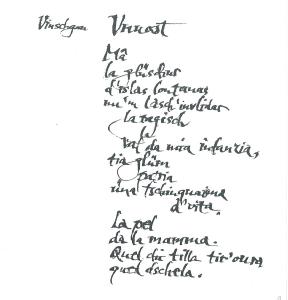 Vinschgau Vnuost
Mâ
la
d'islas lontanas
nu'm lasch'invlidar
la ragisch
la
val da mia infanzia,
tia glüm
üna tschinquaina
d'vita.
La pel
da la mamma.
Quel chi tilla tir'oura
quel dschela.